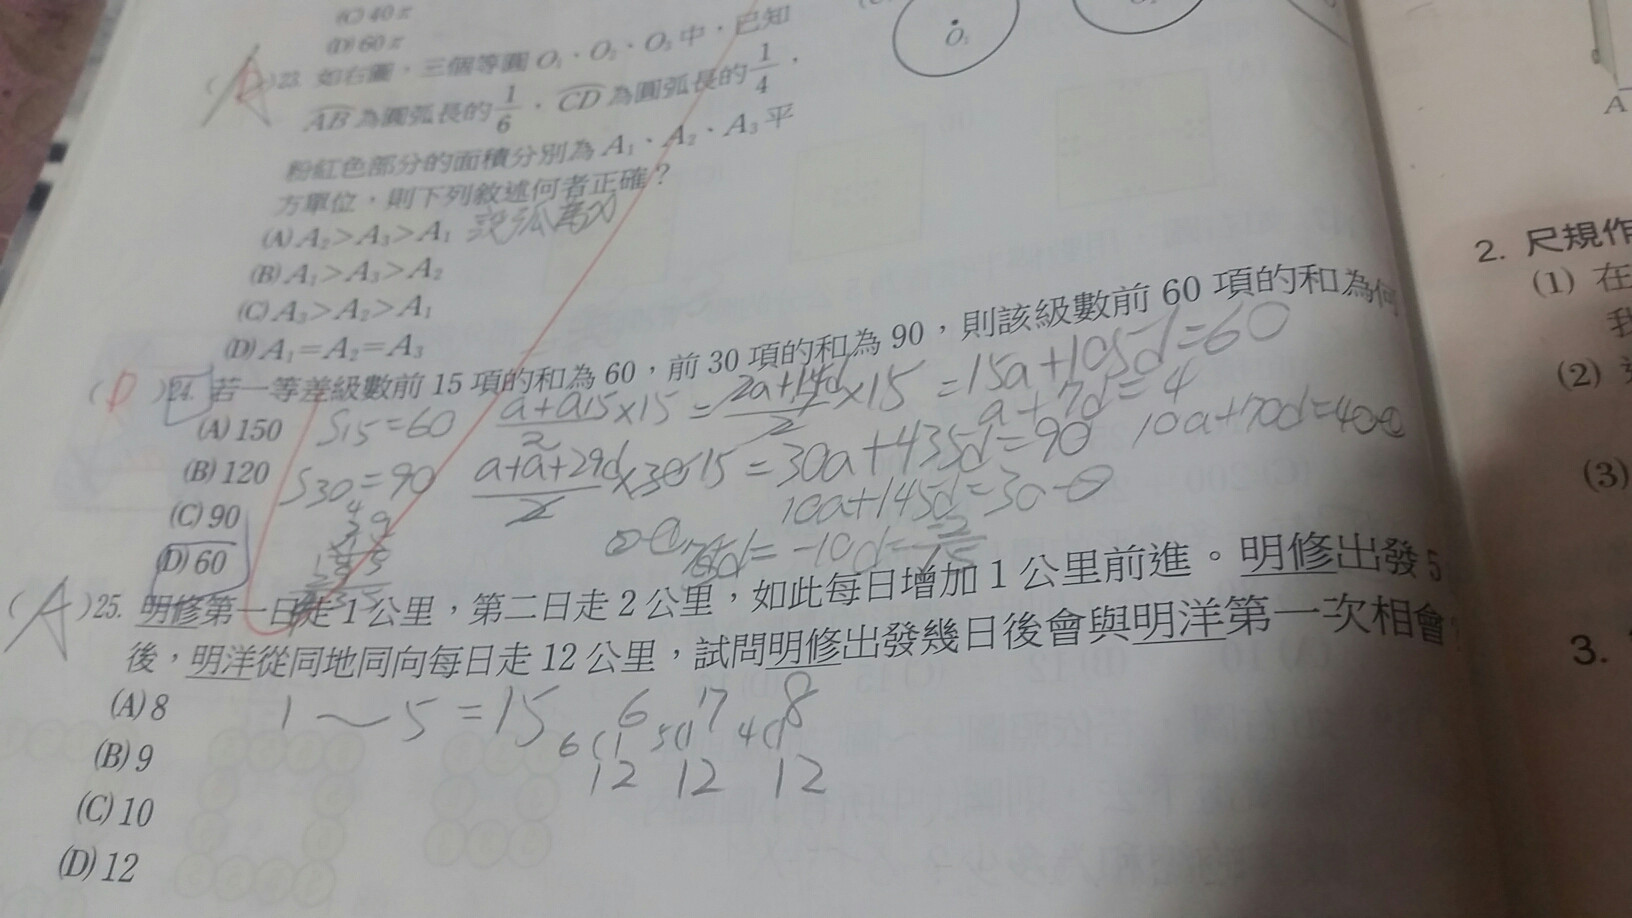 (C) 40π
(D) 60π
(A) 23. 如右圖，三個等圓 O₁、O₂、O₃ 中，已知
AB 為圓弧長的 1/6，CD 為圓弧長的 1/4，
粉紅色部分的面積分別為 A₁、A₂、A₃ 平
方單位，則下列敘述何者正確？
(A) A₂>A₃>A₁ 設弧為x
(B) A₁>A₃>A₂
(C) A₃>A₂>A₁
(D) A₁=A₂=A₃
(D) 24. 若一等差級數前 15 項的和為 60，前 30 項的和為 90，則該級數前 60 項的和為何
(A) 150 S15=60 a+a15/2 ×15 = 2a+14d/2 ×15 = 15a+105d=60
a+7d=4 10a+70d=40
(B) 120 S30=90 a+a+29d/2 ×30 15 = 30a+435d=90
(C) 90 10a+145d=30
(D) 60 75d=-10 d=-2/15
(A) 25. 明修第一日走 1 公里，第二日走 2 公里，如此每日增加 1 公里前進。明修出發 5
後，明洋從同地同向每日走 12 公里，試問明修出發幾日後會與明洋第一次相會
(A) 8 1～5=15 6 7 8
6 5 4
12 12 12
(B) 9
(C) 10
(D) 12
O₂
A
2. 尺規作
(1) 在
我
(2)
(3)
3.